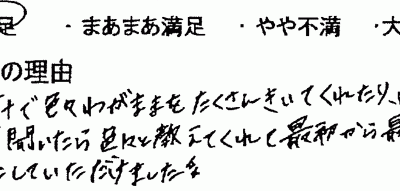 足 ・まあまあ満足 ・やや不満 ・大
の理由
で色々わがままをたくさんきいてくれたり、
聞いたら色々と教えてくれて最初から最
していただけました